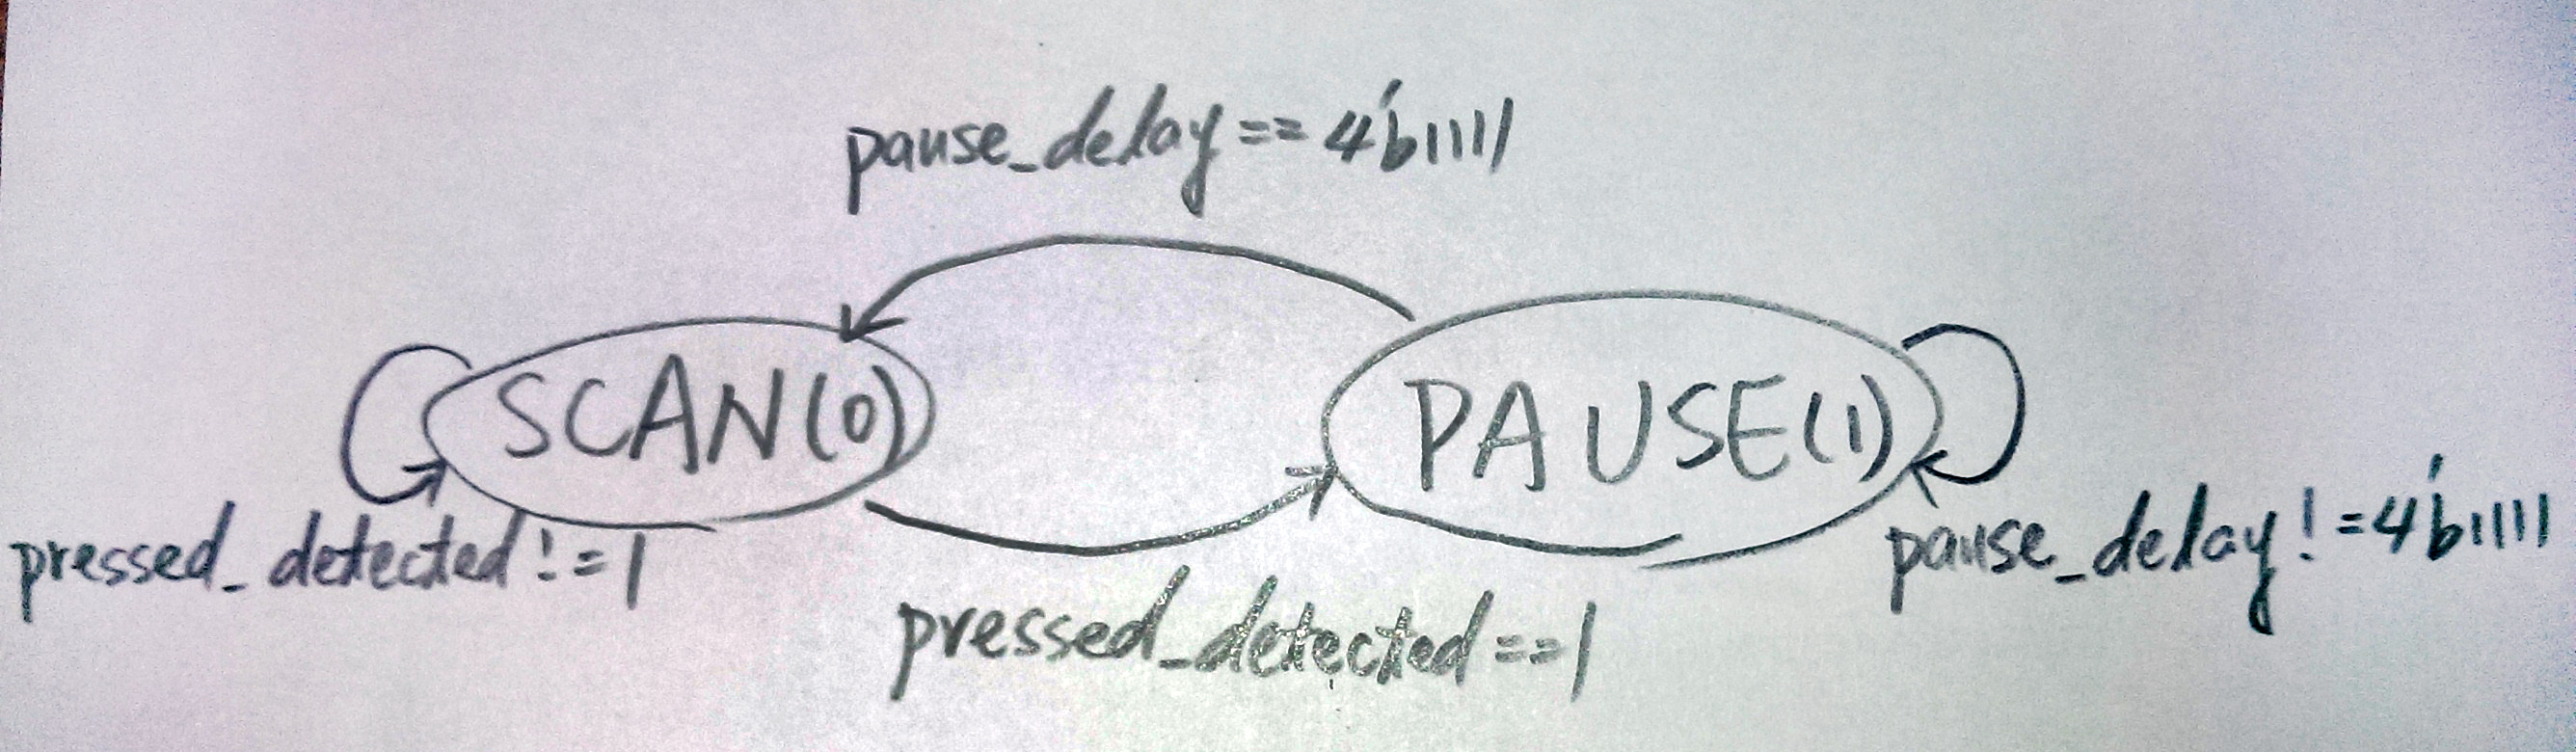 pause_delay == 4'b1111
SCAN(0)
PAUSE(1)
pressed_detected != 1
pause_delay != 4'b1111
pressed_detected == 1